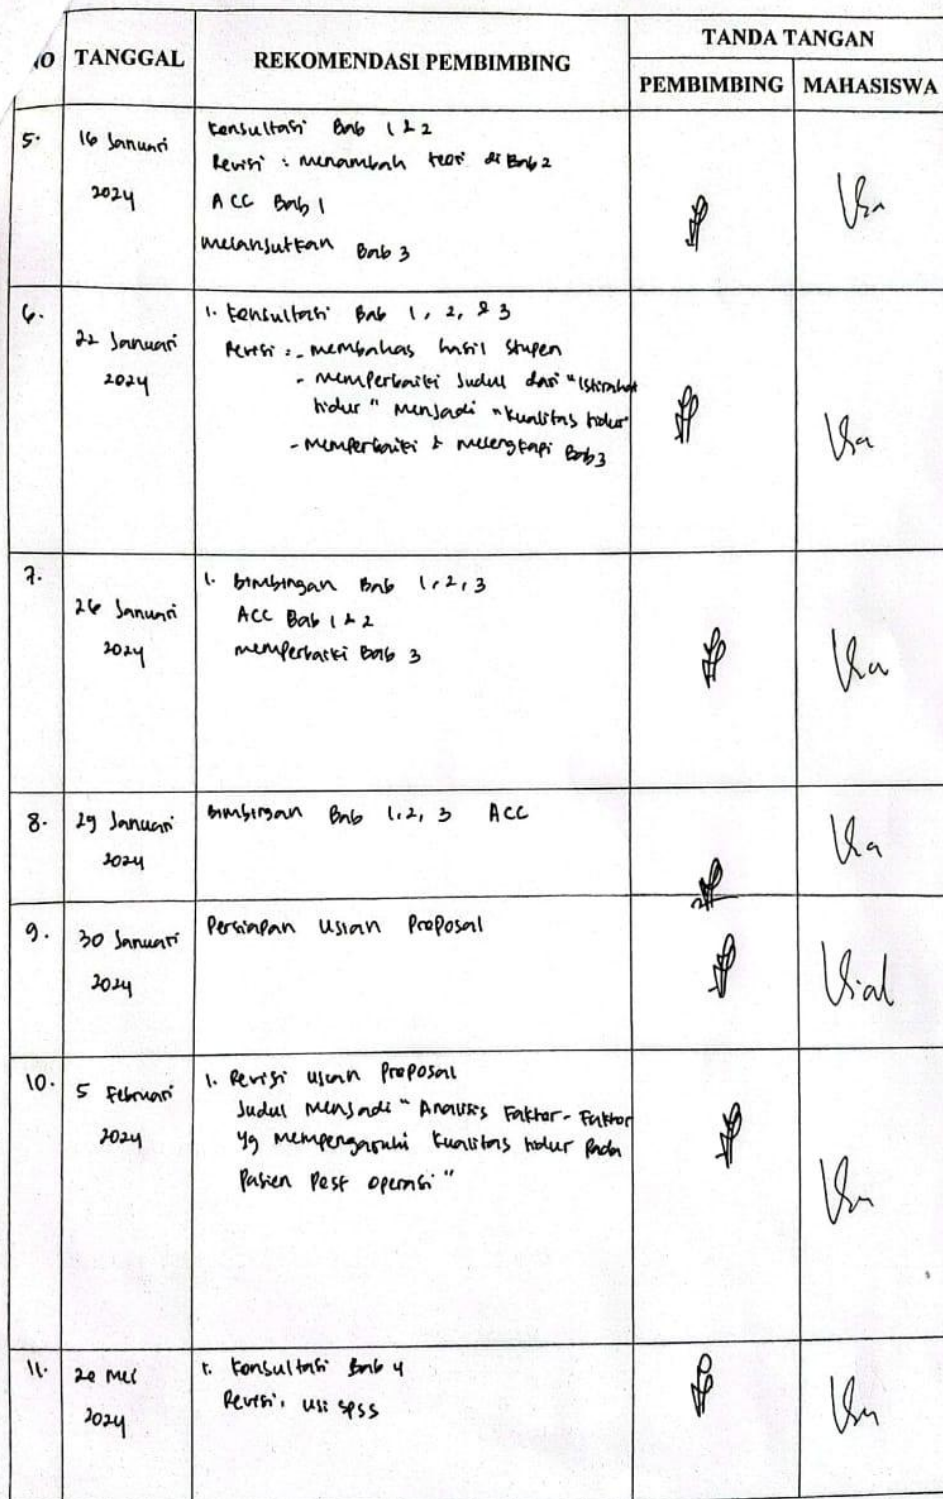 NO TANGGAL REKOMENDASI PEMBIMBING TANDA TANGAN
PEMBIMBING MAHASISWA
5. 16 Januari 2024
Konsultasi Bab 1 & 2
Revisi : menambah teori di Bab 2
ACC Bab 1
Melanjutkan Bab 3
6. 22 Januari 2024
1. Konsultasi Bab 1, 2, & 3
Revisi : - membahas hasil stupen
- memperbaiki Judul dari "Istirahat
tidur" menjadi "kualitas tidur"
- memperbaiki & melengkapi Bab 3
7. 26 Januari 2024
1. bimbingan Bab 1, 2, 3
ACC Bab 1 & 2
memperbaiki Bab 3
8. 29 Januari 2024
bimbingan Bab 1, 2, 3 ACC
9. 30 Januari 2024
Persiapan Ujian Proposal
10. 5 Februari 2024
1. Revisi ujian Proposal
Judul menjadi "Analisis Faktor-Faktor
yg mempengaruhi kualitas tidur Pada
Pasien Post operasi"
11. 20 Mei 2024
1. Konsultasi Bab 4
Revisi, uji spss